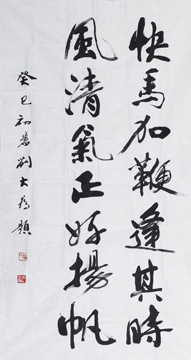 快馬加鞭逢其時
風清氣正好揚帆
癸巳初暑劉大為題